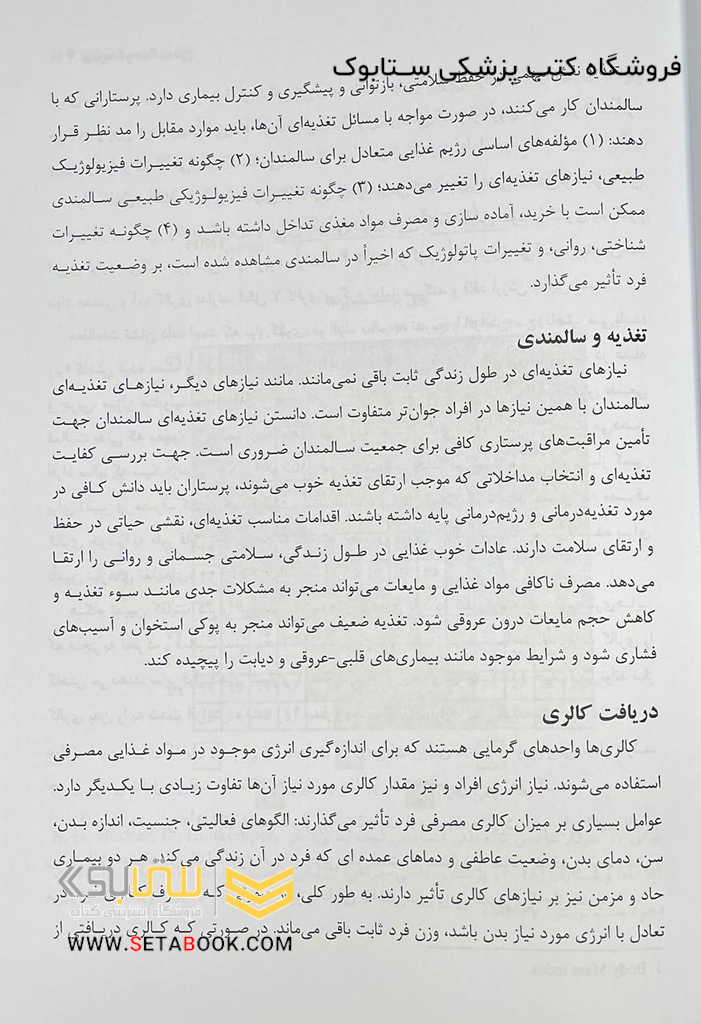 فروشگاه کتب پزشکی ستابوک
تغذیه نقش مهمی در حفظ سلامتی، بازتوانی و پیشگیری و کنترل بیماری دارد. پرستارانی که با
سالمندان کار می‌کنند، در صورت مواجه با مسائل تغذیه‌ای آن‌ها، باید موارد مقابل را مد نظر قرار
دهند: (۱) مؤلفه‌های اساسی رژیم غذایی متعادل برای سالمندان؛ (۲) چگونه تغییرات فیزیولوژیک
طبیعی، نیازهای تغذیه‌ای را تغییر می‌دهند؛ (۳) چگونه تغییرات فیزیولوژیکی طبیعی سالمندی
ممکن است با خرید، آماده سازی و مصرف مواد مغذی تداخل داشته باشد و (۴) چگونه تغییرات
شناختی، روانی، و تغییرات پاتولوژیک که اخیراً در سالمندی مشاهده شده است، بر وضعیت تغذیه
فرد تأثیر می‌گذارد.
تغذیه و سالمندی
نیازهای تغذیه‌ای در طول زندگی ثابت باقی نمی‌مانند. مانند نیازهای دیگر، نیازهای تغذیه‌ای
سالمندان با همین نیازها در افراد جوان‌تر متفاوت است. دانستن نیازهای تغذیه‌ای سالمندان جهت
تأمین مراقبت‌های پرستاری کافی برای جمعیت سالمندان ضروری است. جهت بررسی کفایت
تغذیه‌ای و انتخاب مداخلاتی که موجب ارتقای تغذیه خوب می‌شوند، پرستاران باید دانش کافی در
مورد تغذیه‌درمانی و رژیم‌درمانی پایه داشته باشند. اقدامات مناسب تغذیه‌ای، نقشی حیاتی در حفظ
و ارتقای سلامت دارند. عادات خوب غذایی در طول زندگی، سلامتی جسمانی و روانی را ارتقا
می‌دهد. مصرف ناکافی مواد غذایی و مایعات می‌تواند منجر به مشکلات جدی مانند سوء تغذیه و
کاهش حجم مایعات درون عروقی شود. تغذیه ضعیف می‌تواند منجر به پوکی استخوان و آسیب‌های
فشاری شود و شرایط موجود مانند بیماری‌های قلبی-عروقی و دیابت را پیچیده کند.
دریافت کالری
کالری‌ها واحدهای گرمایی هستند که برای اندازه‌گیری انرژی موجود در مواد غذایی مصرفی
استفاده می‌شوند. نیاز انرژی افراد و نیز مقدار کالری مورد نیاز آن‌ها تفاوت زیادی با یکدیگر دارد.
عوامل بسیاری بر میزان کالری مصرفی فرد تأثیر می‌گذارند: الگوهای فعالیتی، جنسیت، اندازه بدن،
سن، دمای بدن، وضعیت عاطفی و دماهای عمده ای که فرد در آن زندگی می‌کند. هر دو بیماری
حاد و مزمن نیز بر نیازهای کالری تأثیر دارند. به طور کلی، که در
تعادل با انرژی مورد نیاز بدن باشد، وزن فرد ثابت باقی می‌ماند. در صورتی که کالری دریافتی از
ستابوک
فروشگاه اینترنتی کتاب
WWW.SETABOOK.COM